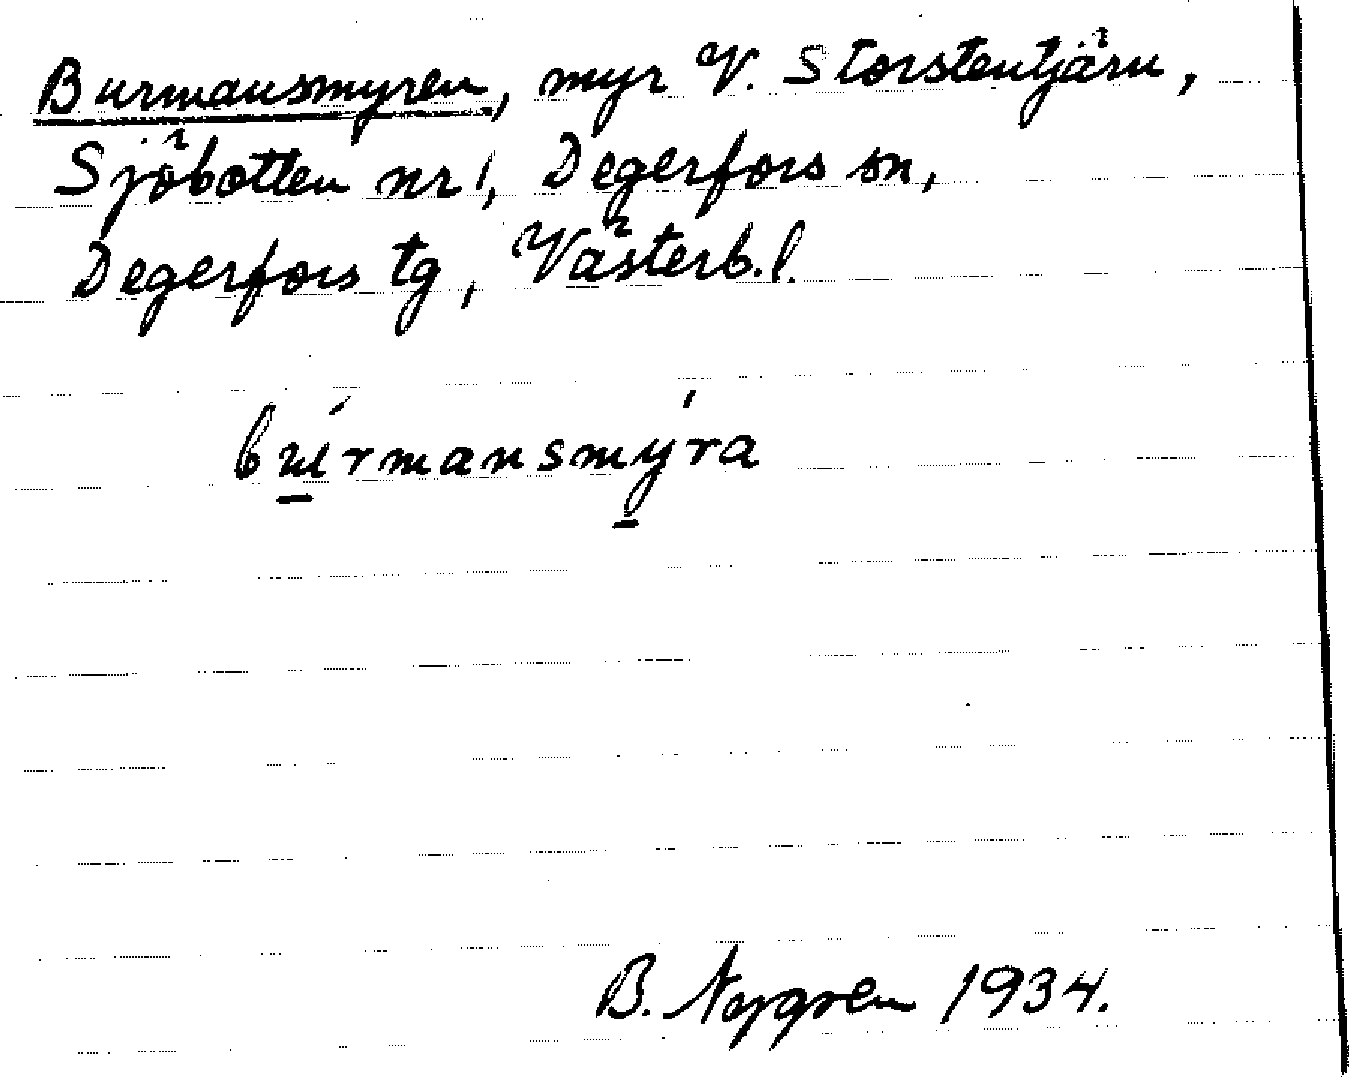 Burmansmyren, myr V. Storstentjärn,
Sjöbotten nr 1, Degerfors sn,
Degerfors tg, Västerb.l.
búrmansmýra
B. Nygren 1934.